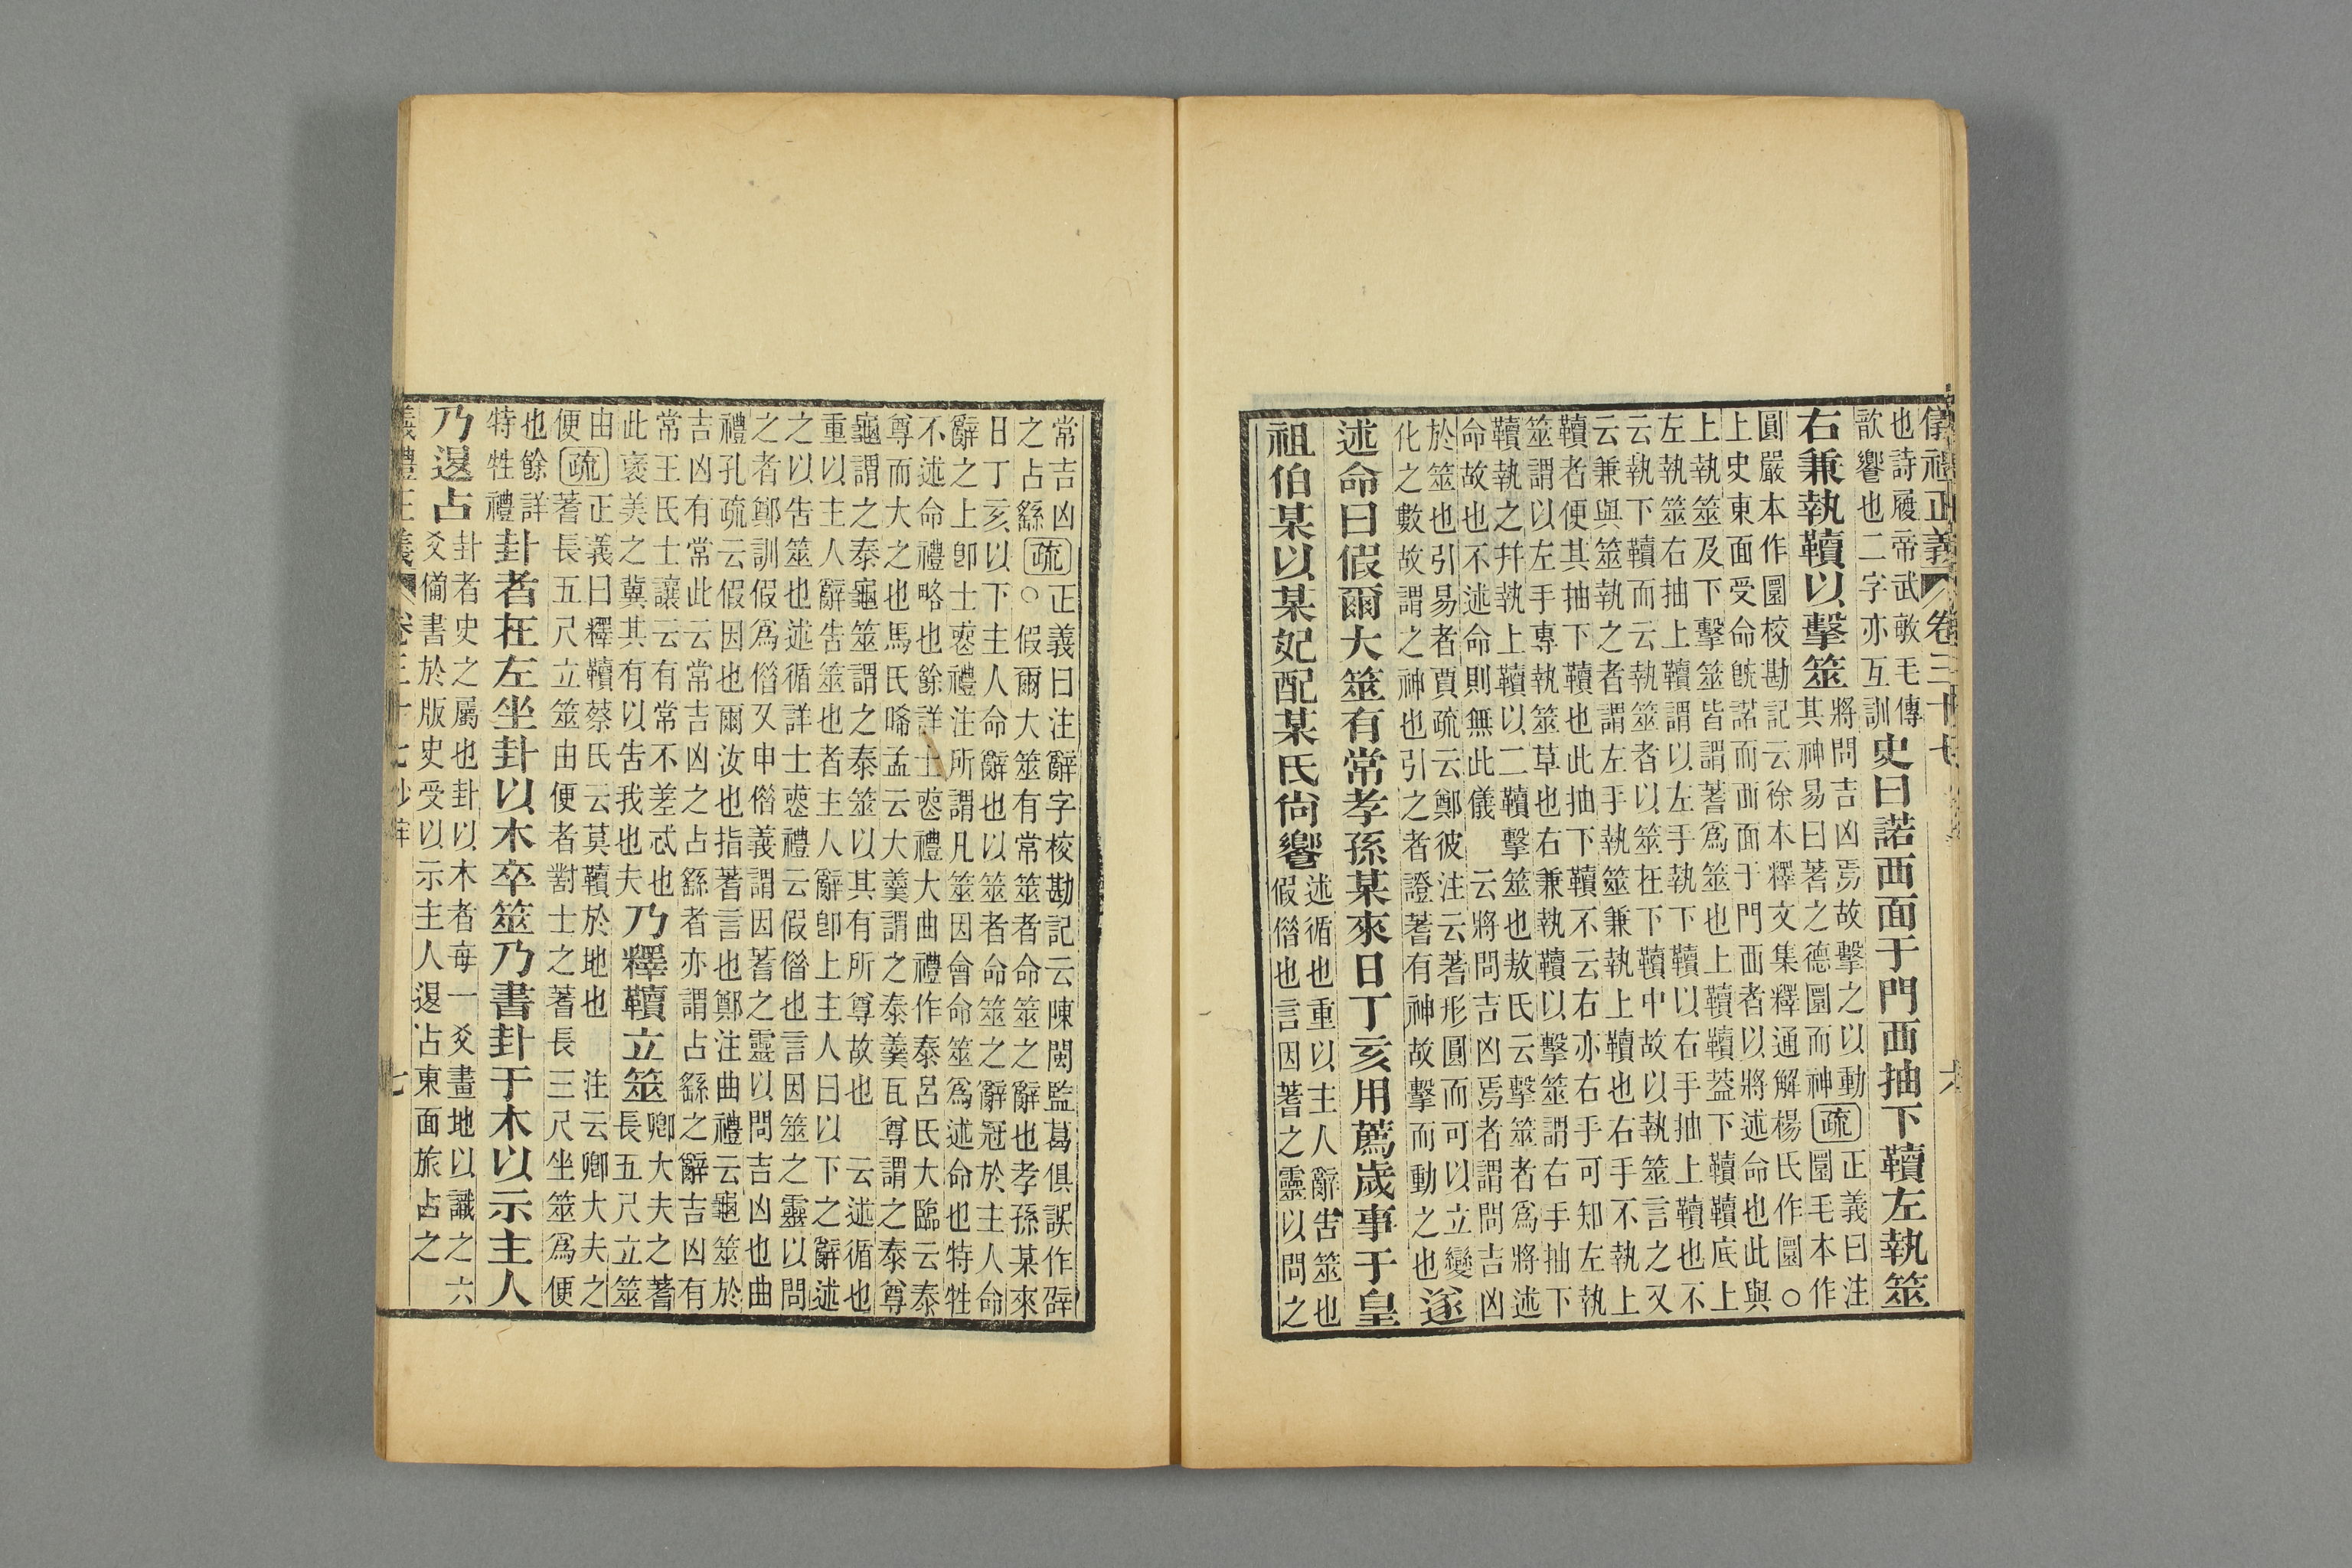 儀禮正義 卷三十七 六
也詩履帝武敏毛傳
歆饗也二字亦互訓
史曰諾西面于門西抽下韇左執筮
右兼執韇以擊筮
將問吉凶焉故擊之以動
其神易曰蓍之德圓而神
疏
正義曰注
圓毛本作
圓嚴本作圜校勘記云徐本釋文集釋通解楊氏作圜○
上史東面受命旣諾而西面于門西者以將述命也此與
上執筮及下擊筮皆謂蓍爲筮也上韇韇蓋下韇韇底上
左執筮右抽上韇謂以左手執下韇以右手抽上韇也不
云執下韇而云執筮者以筮在下韇中故以執筮言之又
云兼與筮執之者謂左手執筮兼執上韇也右手不執上
韇者便其抽下韇也此抽下韇不云右亦右手可知左執
筮謂以左手專執筮草也右兼執韇以擊筮謂右手抽下
韇執之幷執上韇以二韇擊筮也敖氏云擊筮者爲將述
命故也不述命則無此儀 云將問吉凶焉者謂問吉凶
於筮也引易者賈疏云鄭彼注云蓍形圓而可以立變
化之數故謂之神也引之者證蓍有神故擊而動之也
遂
述命曰假爾大筮有常孝孫某來日丁亥用薦歲事于皇
祖伯某以某妃配某氏尙饗
述循也重以主人辭告筮也
假借也言因蓍之靈以問之
常吉凶
之占繇
疏
正義曰注辭字校勘記云陳閩監葛俱誤作辟
○假爾大筮有常筮者命筮之辭也孝孫某來
日丁亥以下主人命辭也以筮者命筮之辭冠於主人命
辭之上卽士喪禮注所謂凡筮因會命筮爲述命也特牲
不述命禮略也餘詳士喪禮大曲禮作泰呂氏大臨云泰
尊而大之也馬氏晞孟云大羹謂之泰羹瓦尊謂之泰尊
龜謂之泰龜筮謂之泰筮以其有所尊故也 云述循也
重以主人辭告筮也者主人辭卽上主人曰以下之辭述
之以告筮也述循詳士喪禮云假借也言因筮之靈以問
之者鄭訓假爲借又申借義謂因蓍之靈以問吉凶也曲
禮孔疏云假因也爾汝也指蓍言也鄭注曲禮云龜筮於
吉凶有常此云常吉凶之占繇者亦謂占繇之辭吉凶有
常王氏士讓云有常不差忒也
此褒美之冀其有以告我也夫
乃釋韇立筮
卿大夫之蓍
長五尺立筮
由
便
疏
正義曰釋韇蔡氏云莫韇於地也 注云卿大夫之
蓍長五尺立筮由便者對士之蓍長三尺坐筮爲便
也餘詳
特牲禮
卦者在左坐卦以木卒筮乃書卦于木以示主人
乃退占
卦者史之屬也卦以木者每一爻畫地以識之六
爻備書於版史受以示主人退占東面旅占之
儀禮正義 卷三十七 少牢 七